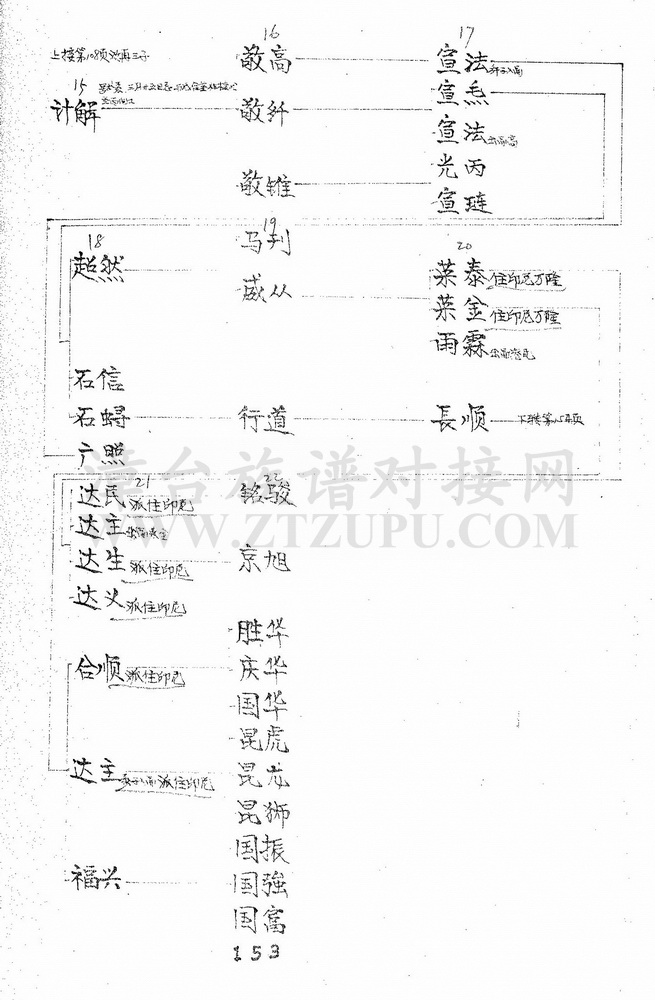 16
17
敬高
宣法
15
宣毛
计解
敬舒
宣法
光丙
敬锥
宣琏
18
19
20
马列
超然
菜泰 住印尼万隆
威从
菜金 住印尼万隆
雨霖
石信
石蟳
行道
長顺
广照
壹台族谱对接网
WWW.ZTZUPU.COM
21
22
达民 派住印尼
铭骏
达主
达生 派住印尼
京旭
达义 派住印尼
胜华
合顺 派住印尼
庆华
国华
昆虎
达主 派住印尼
昆龙
昆狮
国振
福兴
国強
国富
153